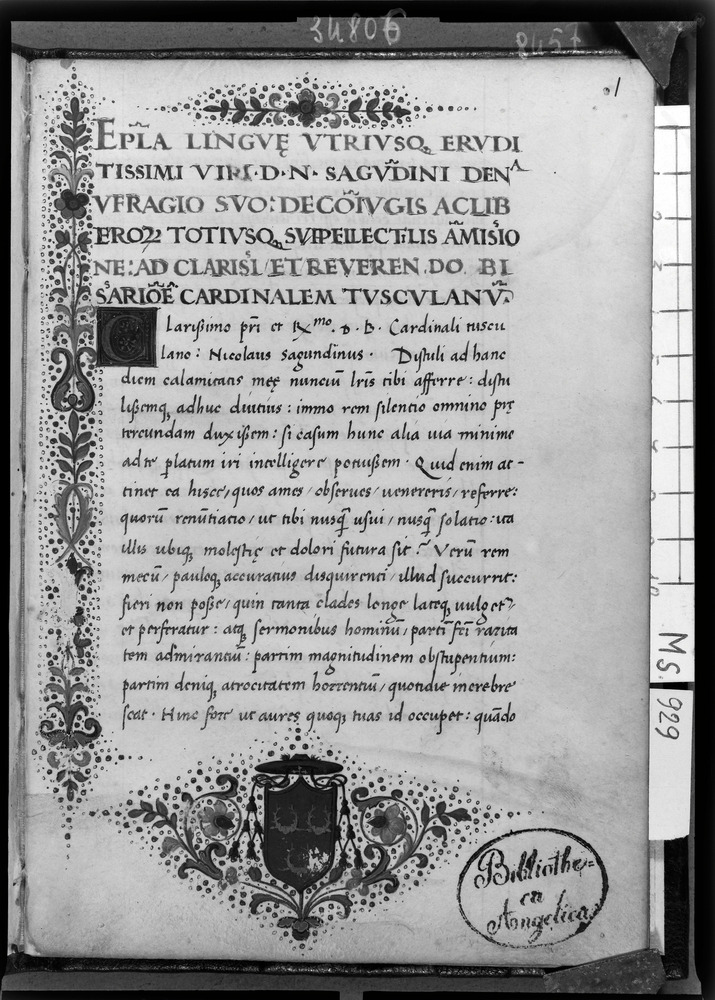 34806
8457
1
EPL̃A LINGVĘ VTRIVSQ, ERVDI
TISSIMI VIRI·D·N· SAGVDINI DE NA
VFRAGIO SVO: DE COĨVGIS AC LIB
EROꝜ TOTIVSQ, SVPPELLECTILIS AMISIO
NE: AD CLARISI ET REVEREN. DO. BI
SARIOÑE CARDINALEM TVSCVLANV̄
Clarissimo pr̄i et Rx̄mo. D. B. Cardinali tuscu
lano: Nicolaus Sagundinus. Distuli ad hanc
diem calamitatis meę nunciū lr̄is tibi afferre: distu
lissemq, adhuc diutius: immo rem silentio omnino prę
tereundam duxissem: si casum hunc alia uia minime
ad te ꝑlatum iri intelligere potuissem. Quid enim at-
tinet ea hisce/ quos ames/ obserues/ uenereris/ referre:
quorū renūtiatio/ ut tibi nusq̄ usui/ nusq̄ solatio: ita
illis ubiq, molestię et dolori futura sit? Verū rem
mecū/ pauloq, accuratius disquirenti/ illud succurrit:
fieri non posse/ quin tanta clades longe lateq, uulget᷑
et perferatur: atq, sermonibus hominū/ partī fc̄i rarita
tem admirantiū: partim magnitudinem obstupentium:
partim deniq, atrocitatem horrentiū/ quotidie increbre
scat. Hinc fore ut aures quoq, tuas id occupet: quādo
Bibliothe=
ca
Angelica
MS. 929